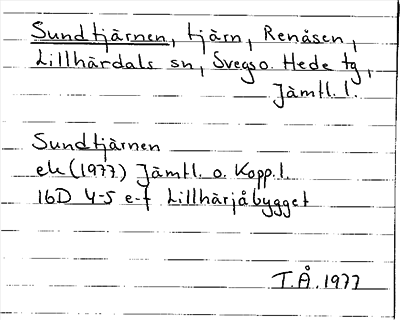 Sundtjärnen, tjärn, Renåsen,
Lillhärdals sn, Svegs o. Hede tg,
Jämtl. l.
Sundtjärnen
ek (1977) Jämtl. o. Kopp. l.
16D 4-5 e-f Lillhärjåbygget
T.Å. 1977